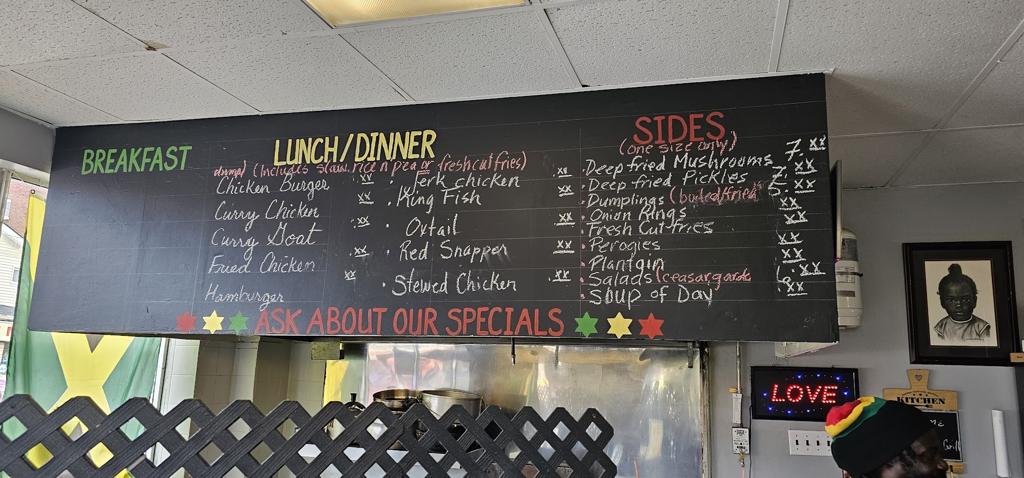 BREAKFAST
LUNCH/DINNER
(Includes slaw, rice n pea or fresh cut fries)
Chicken Burger xx
Curry Chicken xx
Curry Goat xx
Fried Chicken xx
Hamburger
· Jerk chicken xx
· King Fish
· Oxtail xx
· Red Snapper xx
· Stewed Chicken xx
SIDES
(one size only)
Deep fried Mushrooms 7. xx
· Deep fried Pickles
· Dumplings (boiled/fried
· Onion Rings
· Fresh Cut fries
· Perogies
· Plantain
· Salads (ceasar
· Soup of Day
ASK ABOUT OUR SPECIALS
LOVE
KITCHEN